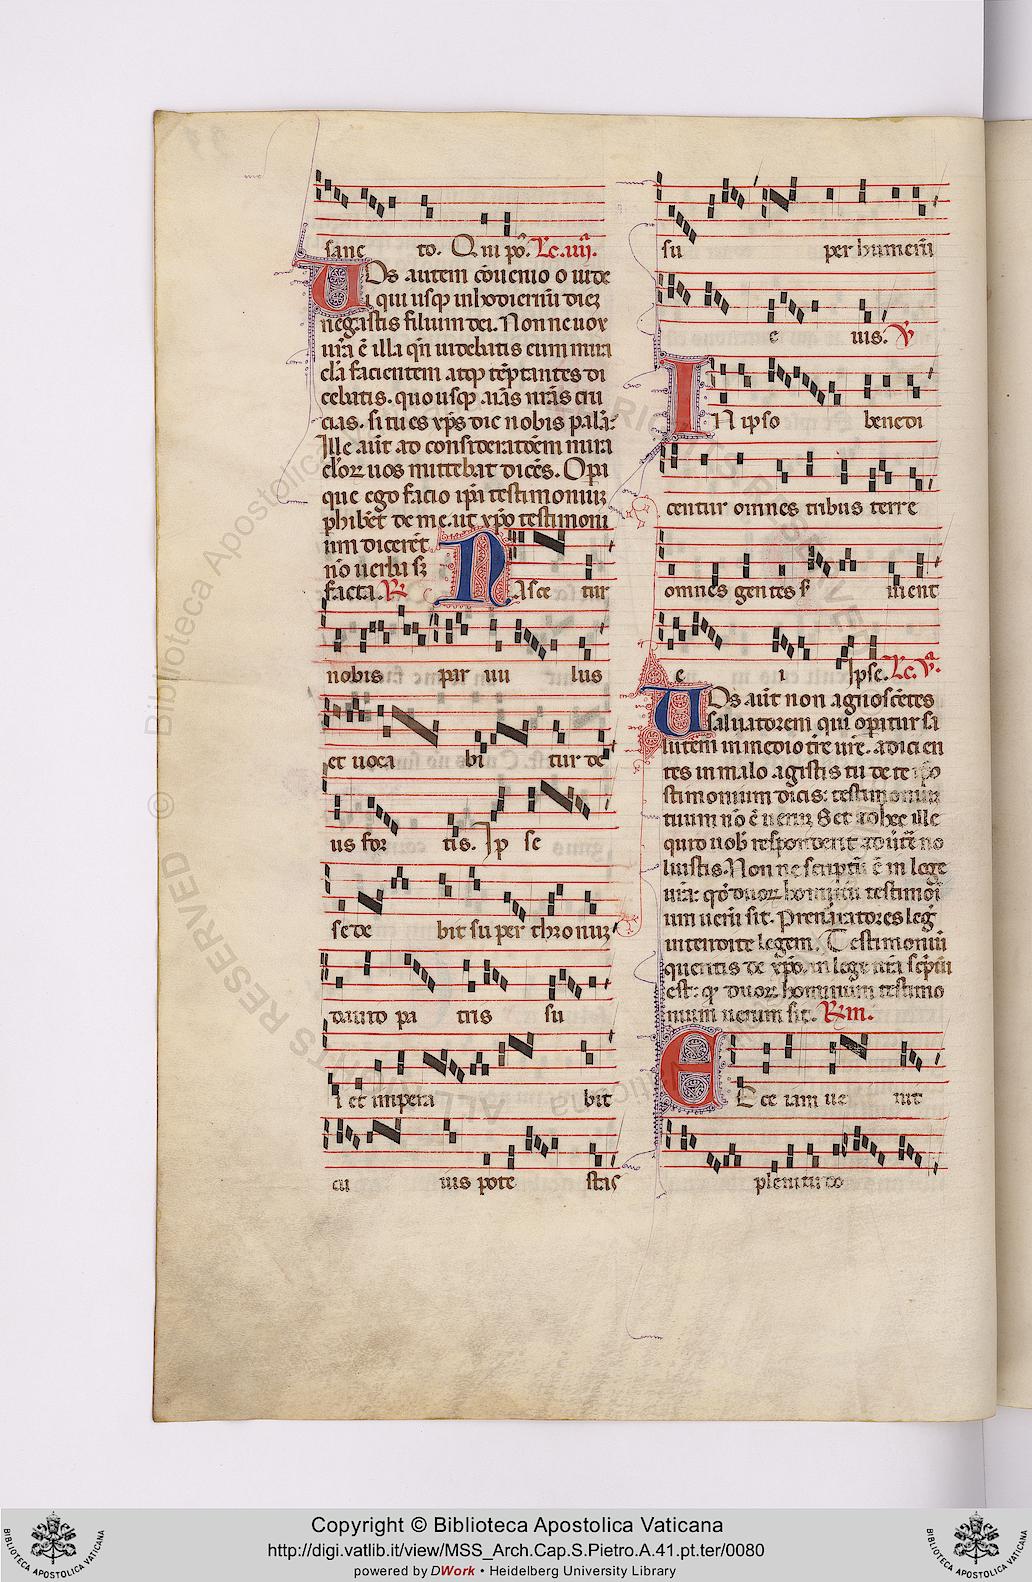 sanc to. Qui p̄o. Lc. iiij.
Uos autem cōuenio o iude
i qui usq; in hodiernū diez
negastis filium dei. Non ne uox
ur̄a ē illa qn̄ uidebatis eum mira
cl̄a facientem atq; tēptantes di
cebatis. quo usq; aīas nr̄as cru
cias. si tu es xp̄s dic nobis palā:
Ille aūt ad consideratōem mira
cl̄oꝝ uos mittebat dicēs. Opi
que ego facio ip̄i testimoniuz
phibēt de me. ut xp̄o testimoni
um diceret
nō uerba sꝫ
facta. R Nasce tur
nobis par uu lus
et uoca bi tur de
us for tis. Ip se
sede bit super thronuz
dauid pa tris su
i et impera bit
cu ius pote stas
su per humerū
e ius. V
In ipso benedi
centur omnes tribus terre
omnes gentes s uient
e i Ipse. Lc. v.ª
Uos aūt non agnoscētes
saluatorem qui opatur sa
lutem in medio tr̄e ur̄e. adicien
tes in malo agistis tu de te ip̄o
stimonium dicis: testimonium
tuum nō ē ueruz Set ad hec ille
quid uob̄ responderit aduertē no
luistis. Non ne scriptū ē in lege
ur̄a: qd̄ duoꝝ hominū testimoī
um uerū sit. Preuaricatores leḡ
intendite legem. Testimoniū
queritis de xp̄o. in lege ur̄a sc̄ptū
est: q; duoꝝ hominum testimo
nium uerum sit. R̄m.
Ecce iam ue nit
plenitudo
Copyright © Biblioteca Apostolica Vaticana
http://digi.vatlib.it/view/MSS_Arch.Cap.S.Pietro.A.41.pt.ter/0080
powered by DWork • Heidelberg University Library
BIBLIOTECA APOSTOLICA VATICANA
BIBLIOTECA APOSTOLICA VATICANA
© Biblioteca Apostolica Vaticana
ALL RIGHTS RESERVED